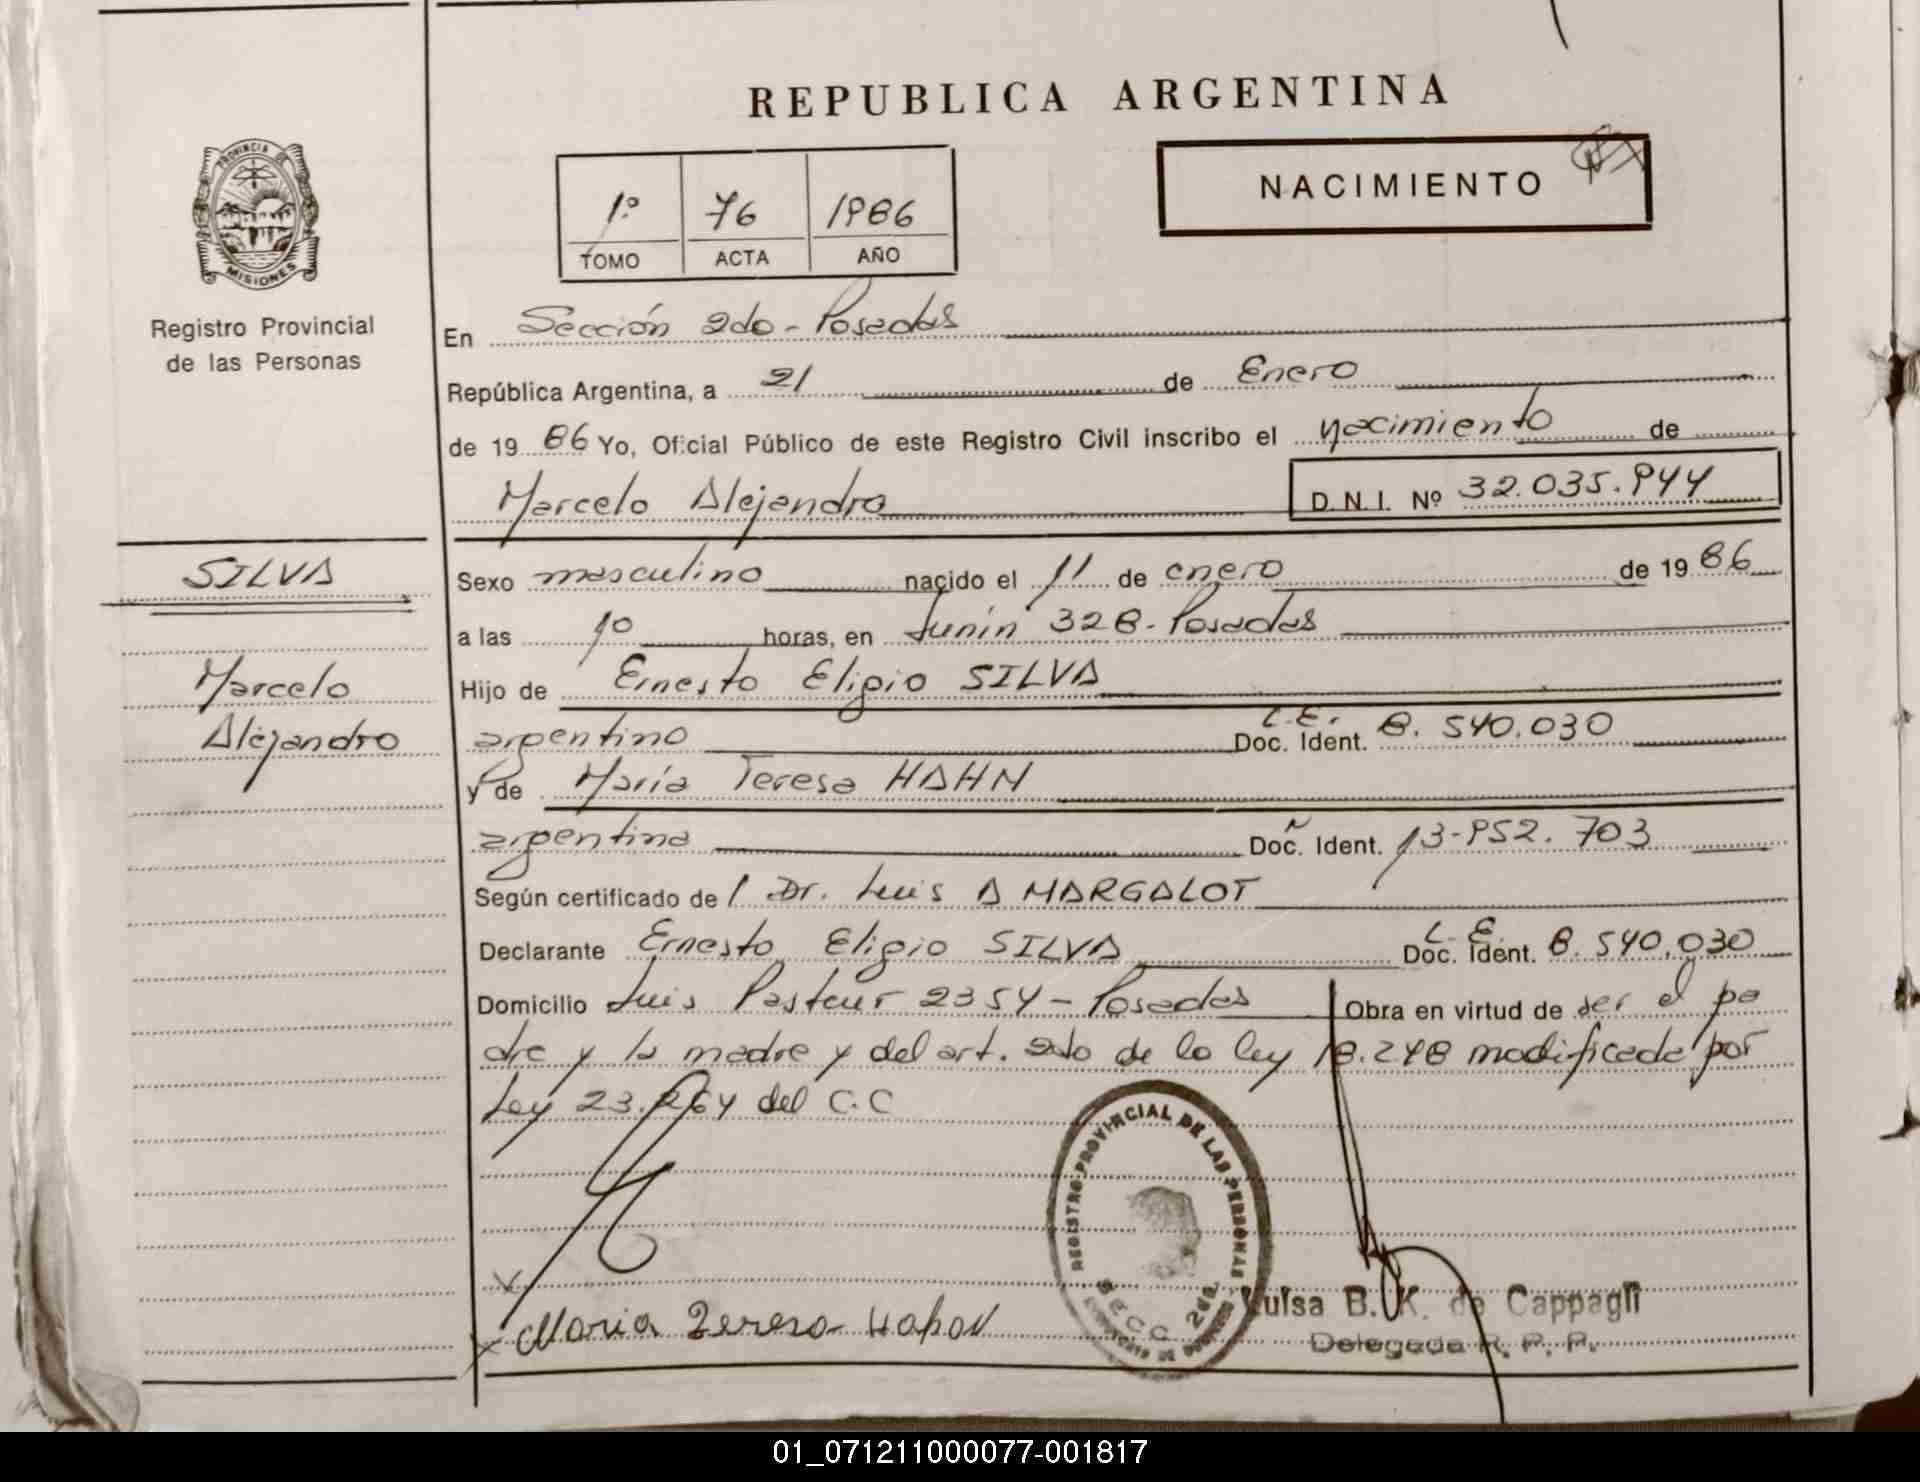 REPUBLICA ARGENTINA
PROVINCIA DE
MISIONES
Registro Provincial
de las Personas
1º 76 1986
TOMO ACTA AÑO
NACIMIENTO
En Sección 2do - Posadas
República Argentina, a 21 de Enero
de 19 86 Yo, Oficial Público de este Registro Civil inscribo el nacimiento de
Marcelo Alejandro D.N.I. Nº 32.035.944
SILVA
Marcelo
Alejandro
Sexo masculino nacido el 11 de enero de 19 86
a las 10 horas, en Junín 328 - Posadas
Hijo de Ernesto Eligio SILVA
argentino Doc. Ident. L.E. 8.540.030
y de María Teresa HAHN
argentina Doc. Ident. 13-952.703
Según certificado de Dr. Luis A MARGALOT
Declarante Ernesto Eligio SILVA Doc. Ident. L.E. 8.540.030
Domicilio Luis Pasteur 2354 - Posadas Obra en virtud de ser el pa
dre y la madre y del art. 2do de la ley 18.248 modificada por
Ley 23.264 del C.C
REGISTRO PROVINCIAL DE LAS PERSONAS
SECC 2da
Luisa B. K. de Cappagli
Delegada R. P. P.
Maria Teresa
01_071211000077-001817